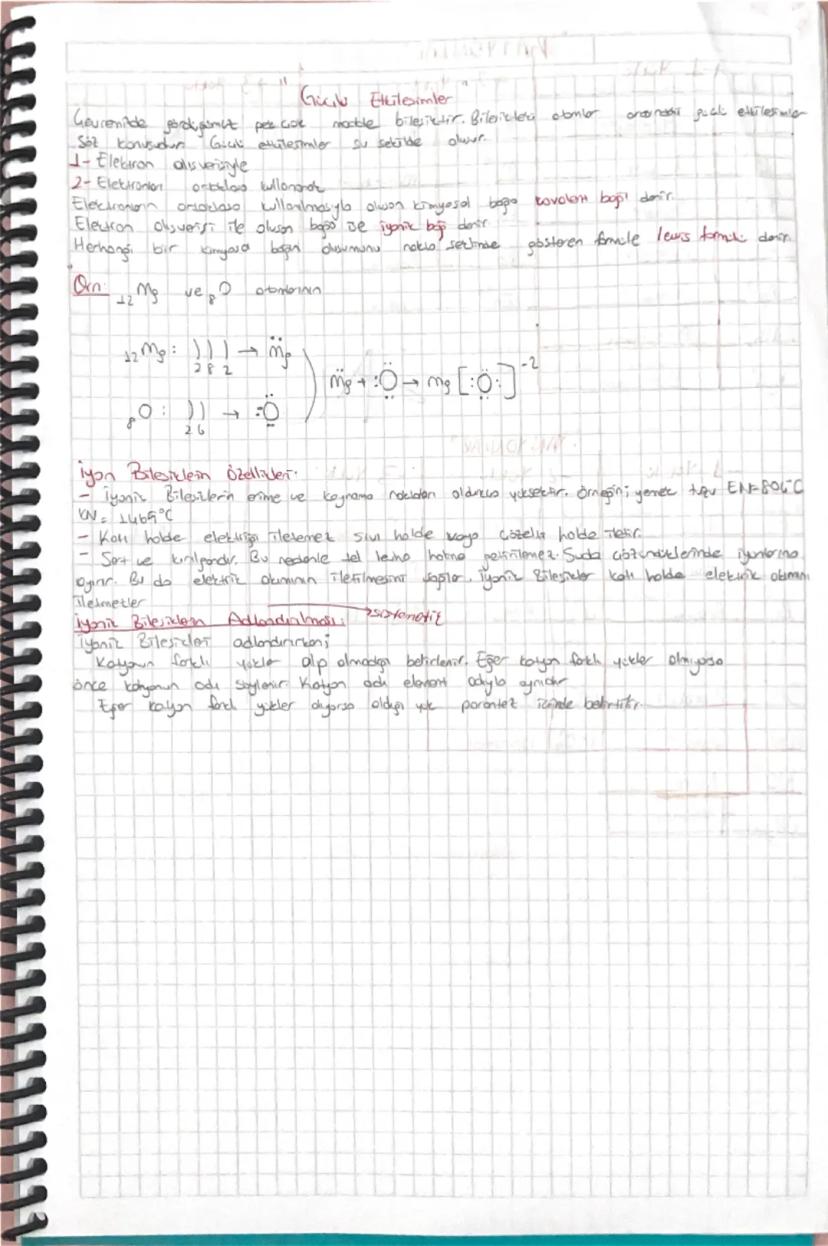 "Güçlü Etkileşimler"
Çevremizde gördüğümüz pek çok madde bileşiktir. Bileşikteki atomlar arasında güçlü etkileşimler
söz konusudur. Güçlü etkileşimler şu şekilde oluşur.
1- Elektron alışverişiyle
2- Elektronları ortaklaşa kullanarak
Elektronların ortaklaşa kullanılmasıyla oluşan kimyasal bağa kovalent bağı denir.
Elektron alışverişi ile oluşan bağa ise iyonik bağ denir.
Herhangi bir kimyasal bağın oluşumunu nokta şeklinde gösteren formüle lewis formülü denir.
Örn: 12Mg ve 8O atomlarının
12Mg: ))) → Mg
2 8 2
Mg + :O → Mg [:O:]-2
8O: )) → :O
2 6
İyon Bileşiklerin Özellikleri:
- İyonik Bileşiklerin erime ve kaynama noktaları oldukça yüksektir. Örneğin; yemek tuzu EN=801°C
KN= 1465°C
- Katı halde elektriği iletemez sıvı halde veya çözelti halde iletir.
- Sert ve kırılgandır. Bu nedenle tel levha haline getirilemez. Suda çözündüklerinde iyonlarına
ayrılır. Bu da elektrik akımının iletilmesini sağlar. İyonik Bileşikler katı halde elektrik akımını
iletmezler
İyonik Bileşiklerin Adlandırılması: → sistematik
İyonik Bileşikler adlandırılırken;
Katyonun farklı yükler alıp almadığı belirlenir. Eğer katyon farklı yükler almıyorsa
önce katyonun adı söylenir. Katyon adı element adıyla aynıdır
Eğer katyon farklı yükler alıyorsa aldığı yük parantez içinde belirtilir.